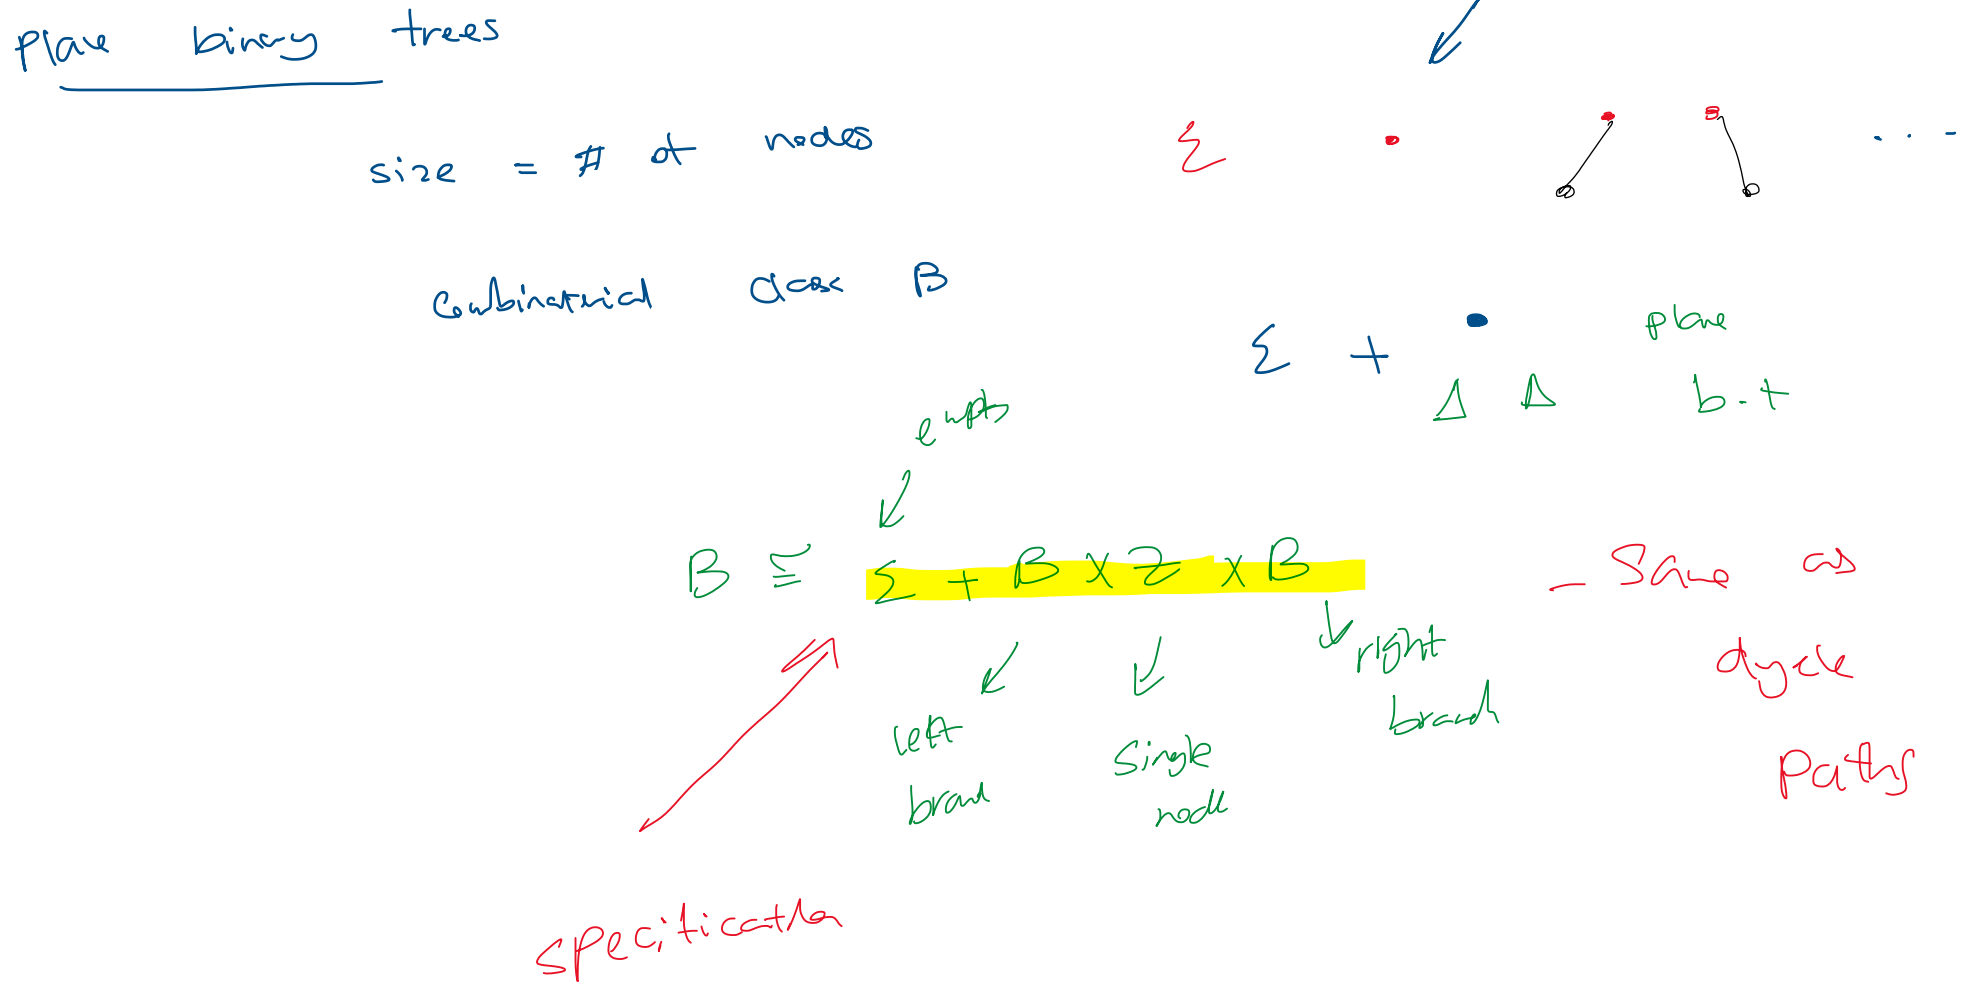 Plane binary trees
size = # of nodes
Σ · · · ·
combinatorial class B
Σ + •
plane
b.t
empty
B ≅ Σ + B × Z × B
– Same as
dyck
Paths
left
branch
Single
node
right
branch
specification